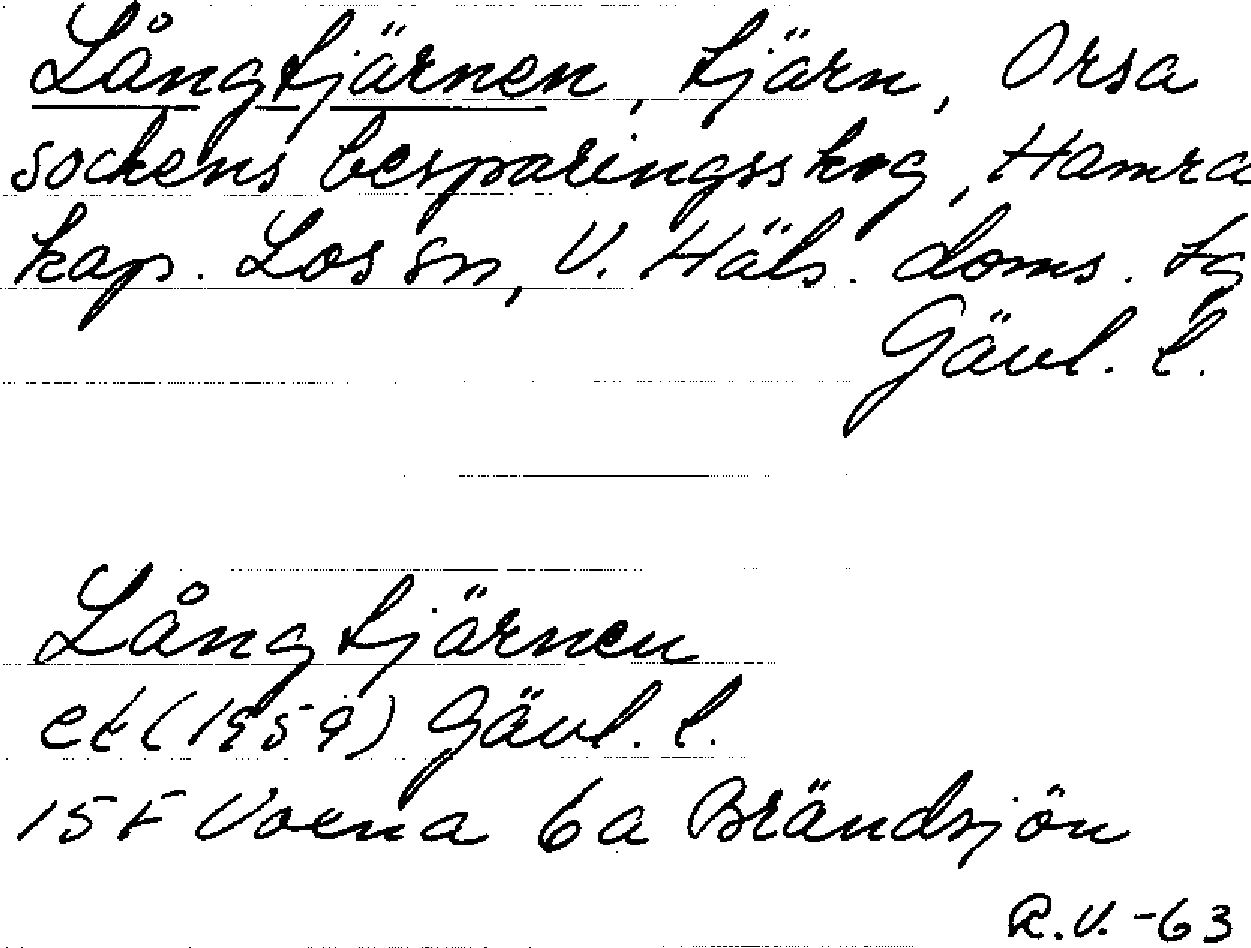 Långtjärnen, tjärn, Orsa
sockens besparingsskog, Hamra
kap. Los sn, V. Häls. doms. tg
Gävl. l.
Långtjärnen
ek (1959) Gävl. l.
15F Voxna 6a Brändsjön
R.V. -63